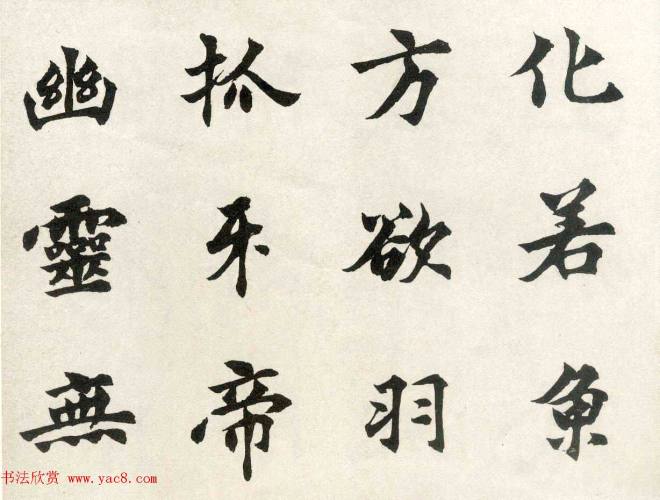 化若魚
方欲羽
抓牙帝
幽靈無
书法欣赏 www.yac8.com